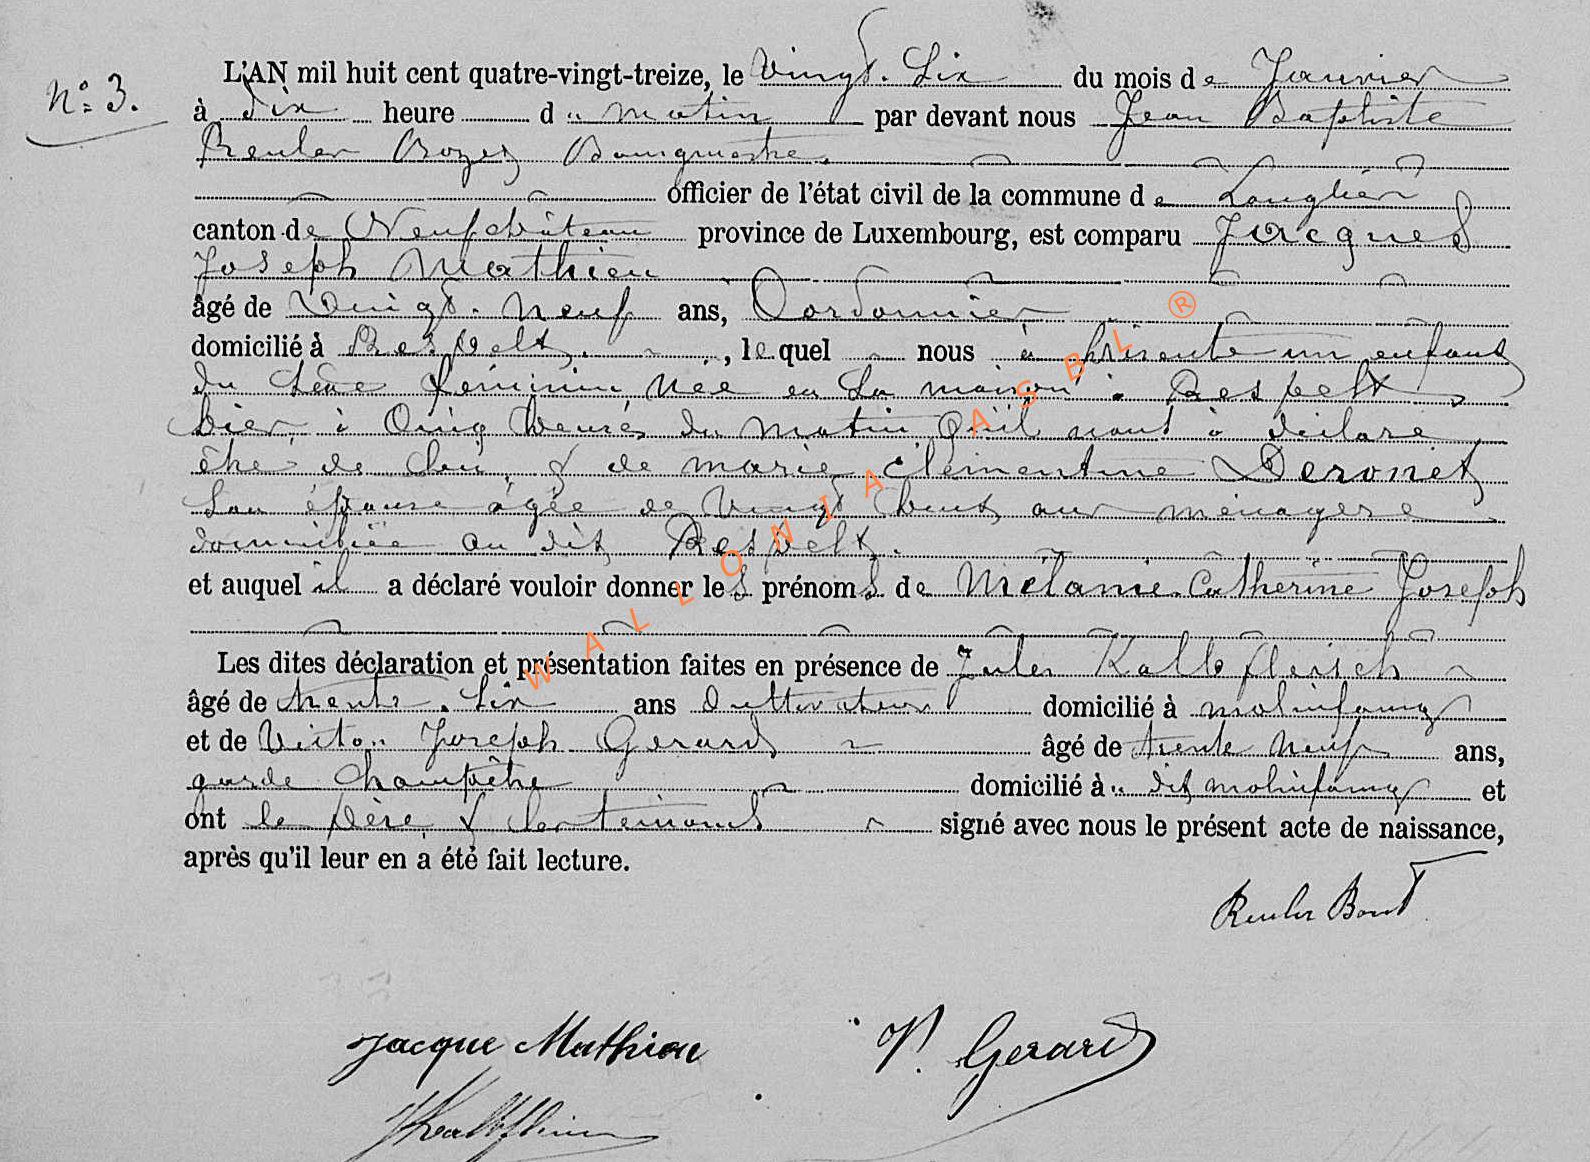 N° 3.
L'AN mil huit cent quatre-vingt-treize, le Vingt. Six du mois de Janvier
à dix heure du matin par devant nous Jean Baptiste
Reuler Bourgmestre
officier de l'état civil de la commune de Longlier
canton de Neufchâteau province de Luxembourg, est comparu Jacques
Joseph Mathieu
âgé de Vingt. Neuf ans, Cordonnier
domicilié à Respelt, lequel nous à présenté un enfant
du sexe féminin, Née en sa maison à Respelt
hier, à Cinq heures du matin, qu'il nous à déclaré
être de lui, & de marie Clémentine Deronet
son épouse âgée de Vingt huit ans ménagère
domiciliée au dit Respelt.
et auquel il a déclaré vouloir donner les prénoms de Mélanie Catherine Joseph
Les dites déclaration et présentation faites en présence de Jules Kalbfleisch
âgé de trente. Six ans Cultivateur domicilié à molinfaing
et de Victor Joseph Gerard âgé de trente Neuf ans,
garde Champêtre domicilié à dit molinfaing et
ont le père, & les témoins signé avec nous le présent acte de naissance,
après qu'il leur en a été fait lecture.
Reuler
Jacque Mathieu V. Gerard
WALLONIA ASBL ®